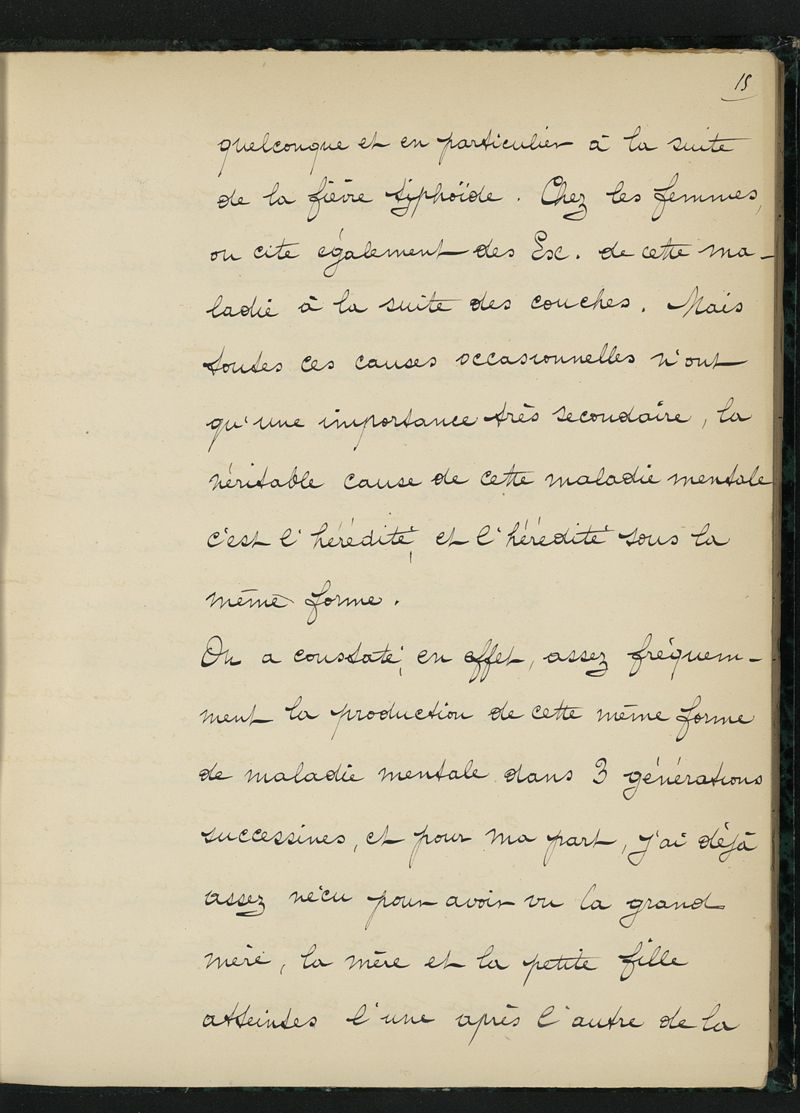 15
quelconque et en particulier à la suite
de la fièvre typhoïde. Chez les femmes,
on cite également des Ex. de cette ma-
ladie à la suite des couches. Mais
toutes ces causes occasionnelles n'ont
qu'une importance très secondaire, la
véritable cause de cette maladie mentale
c'est l'hérédité, et l'hérédité sous la
même forme.
On a constaté, en effet, assez fréquem-
ment la production de cette même forme
de maladie mentale dans 3 générations
successives, et pour ma part, j'ai déjà
assez vécu pour avoir vu la grand
mère, la mère et la petite fille
atteintes l'une après l'autre de la